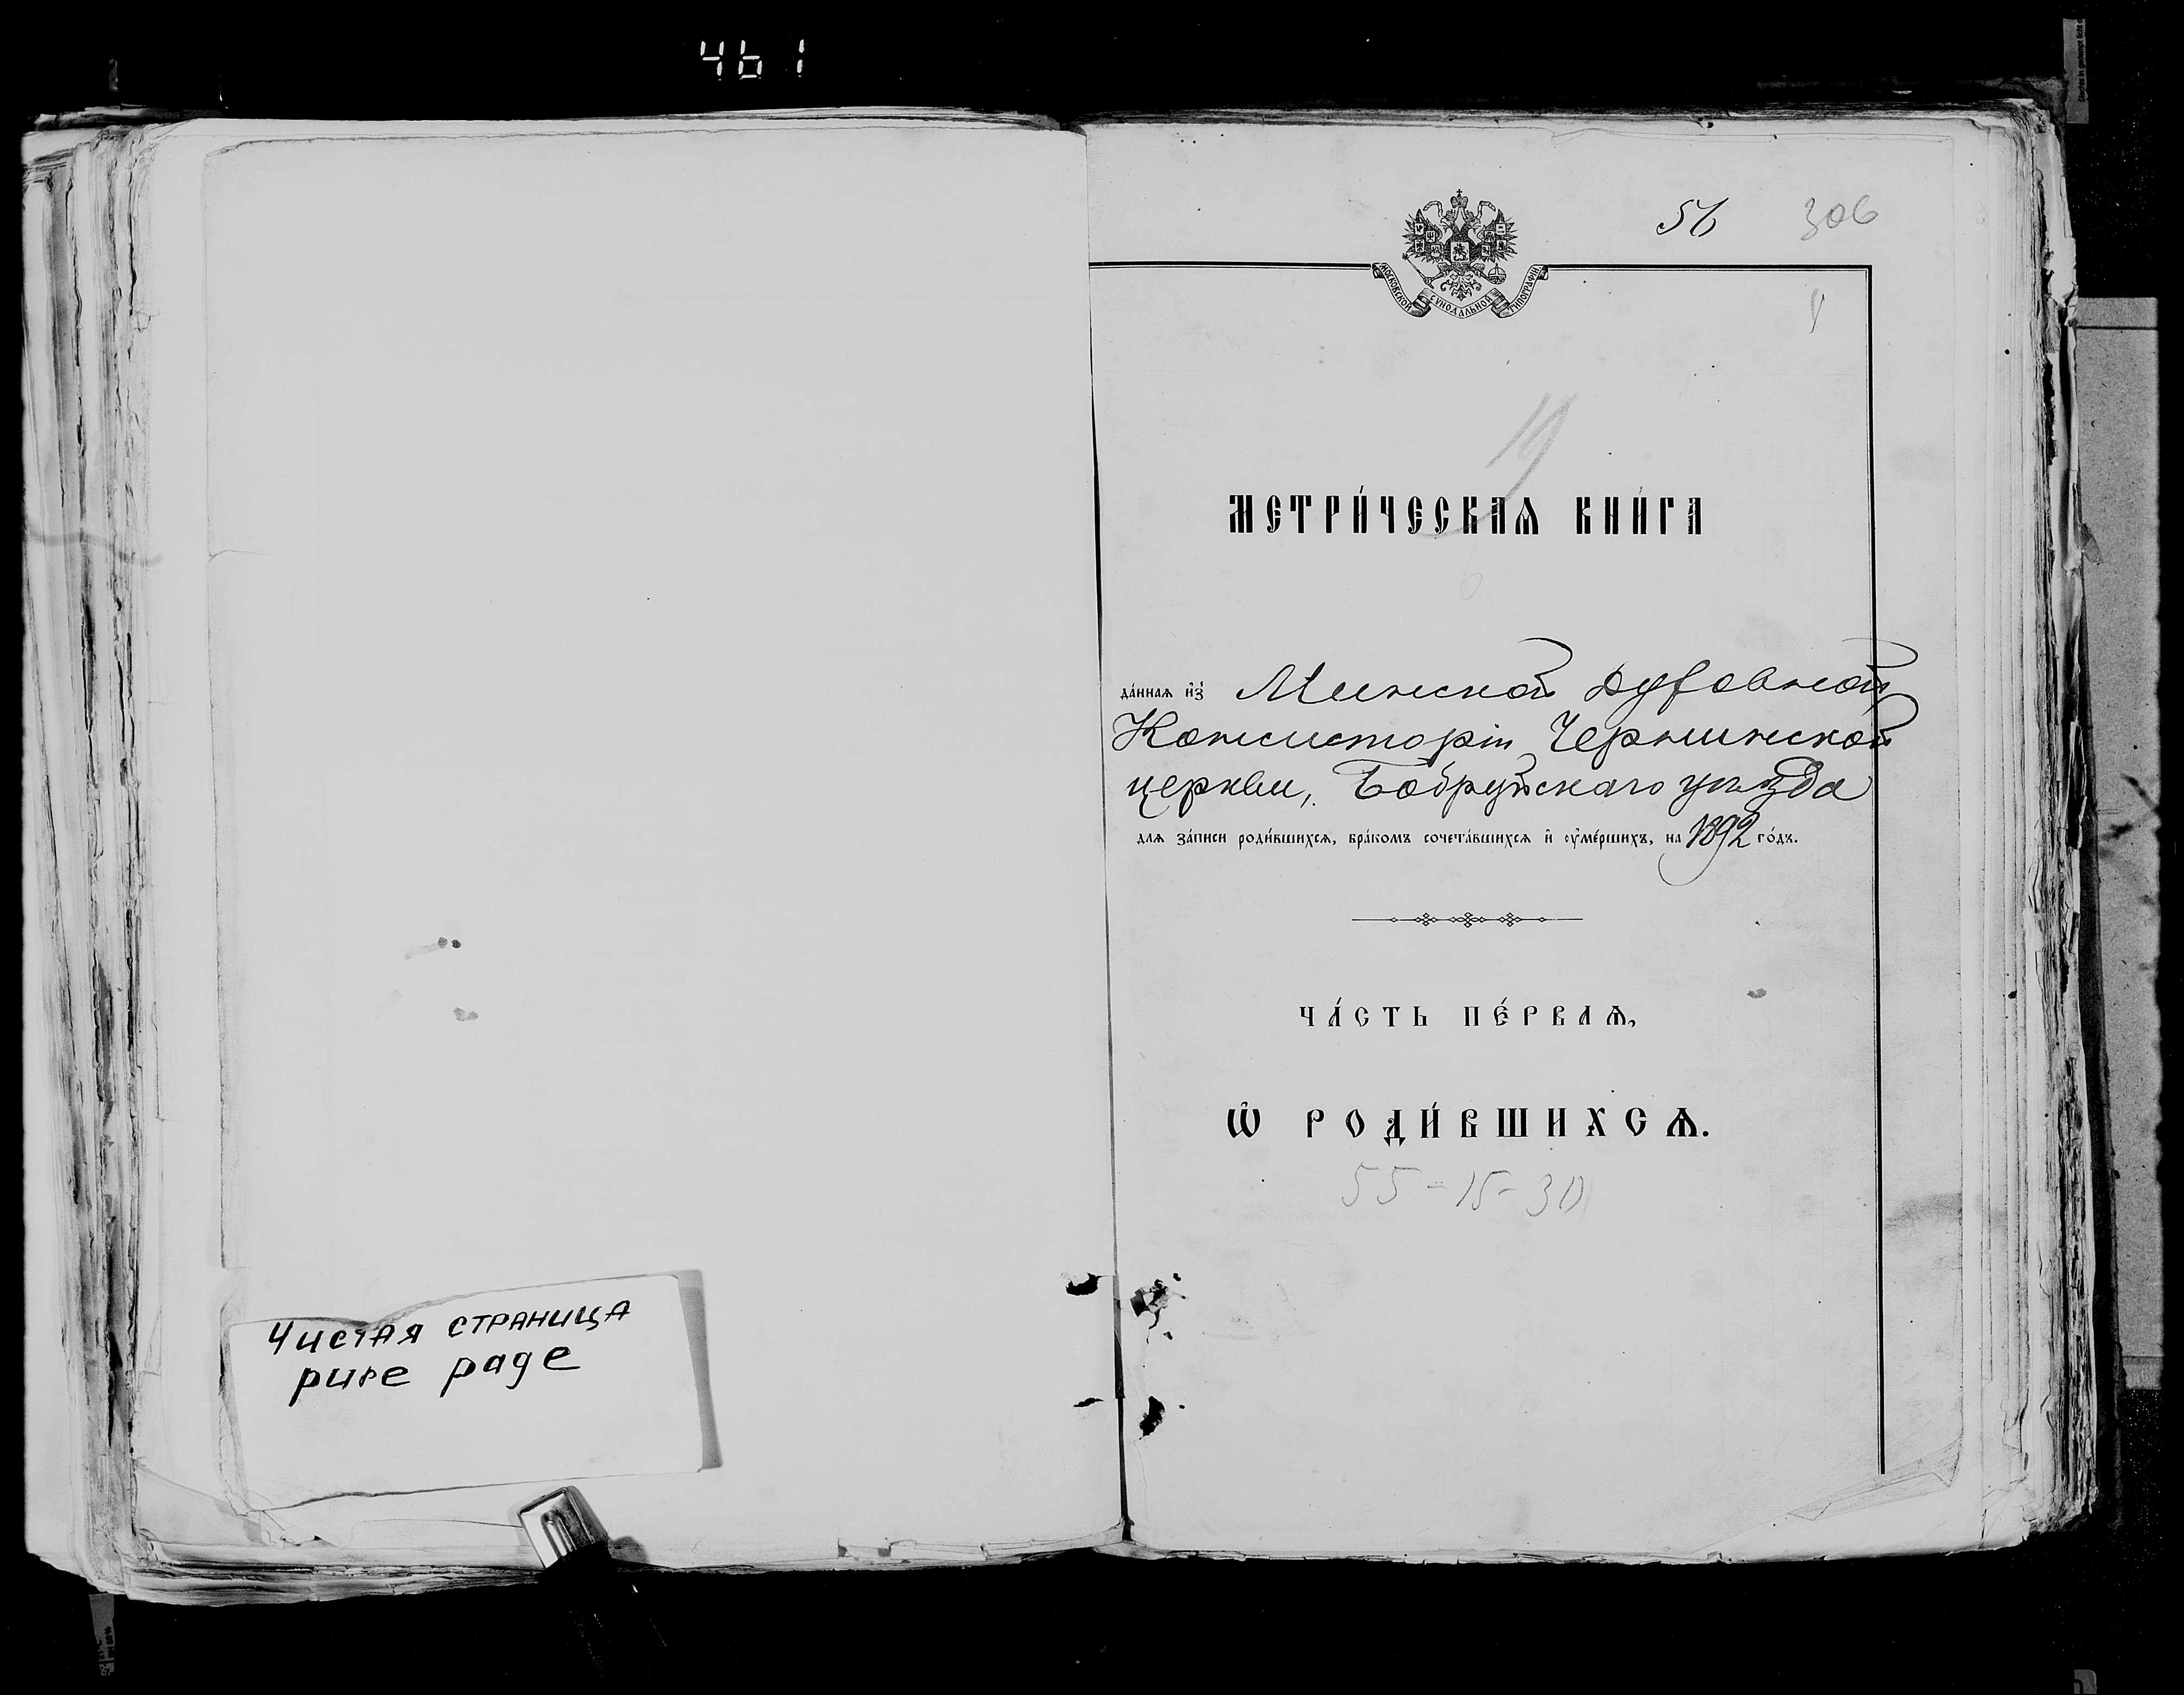 461
56 306
МОСКОВСКОЙ СѴНОДАЛЬНОЙ ТИПОГРАФІИ
19
МЕТРИ́ЧЕСКАѦ КНИ́ГА
да́ннаѧ и҆з̾ Минской Духовной
Консисторіи Чернинской
церкви, Бобруйскаго уѣзда
длѧ за́писи роди́вшихсѧ, бра́комъ сочета́вшихсѧ и҆ ᲂу҆ме́ршихъ, на 1892 го́дъ.
ЧА́СТЬ ПЕ́РВАѦ,
Ѡ҆ РОДИ́ВШИХСѦ.
55-15-30
Чистая страница
pure page